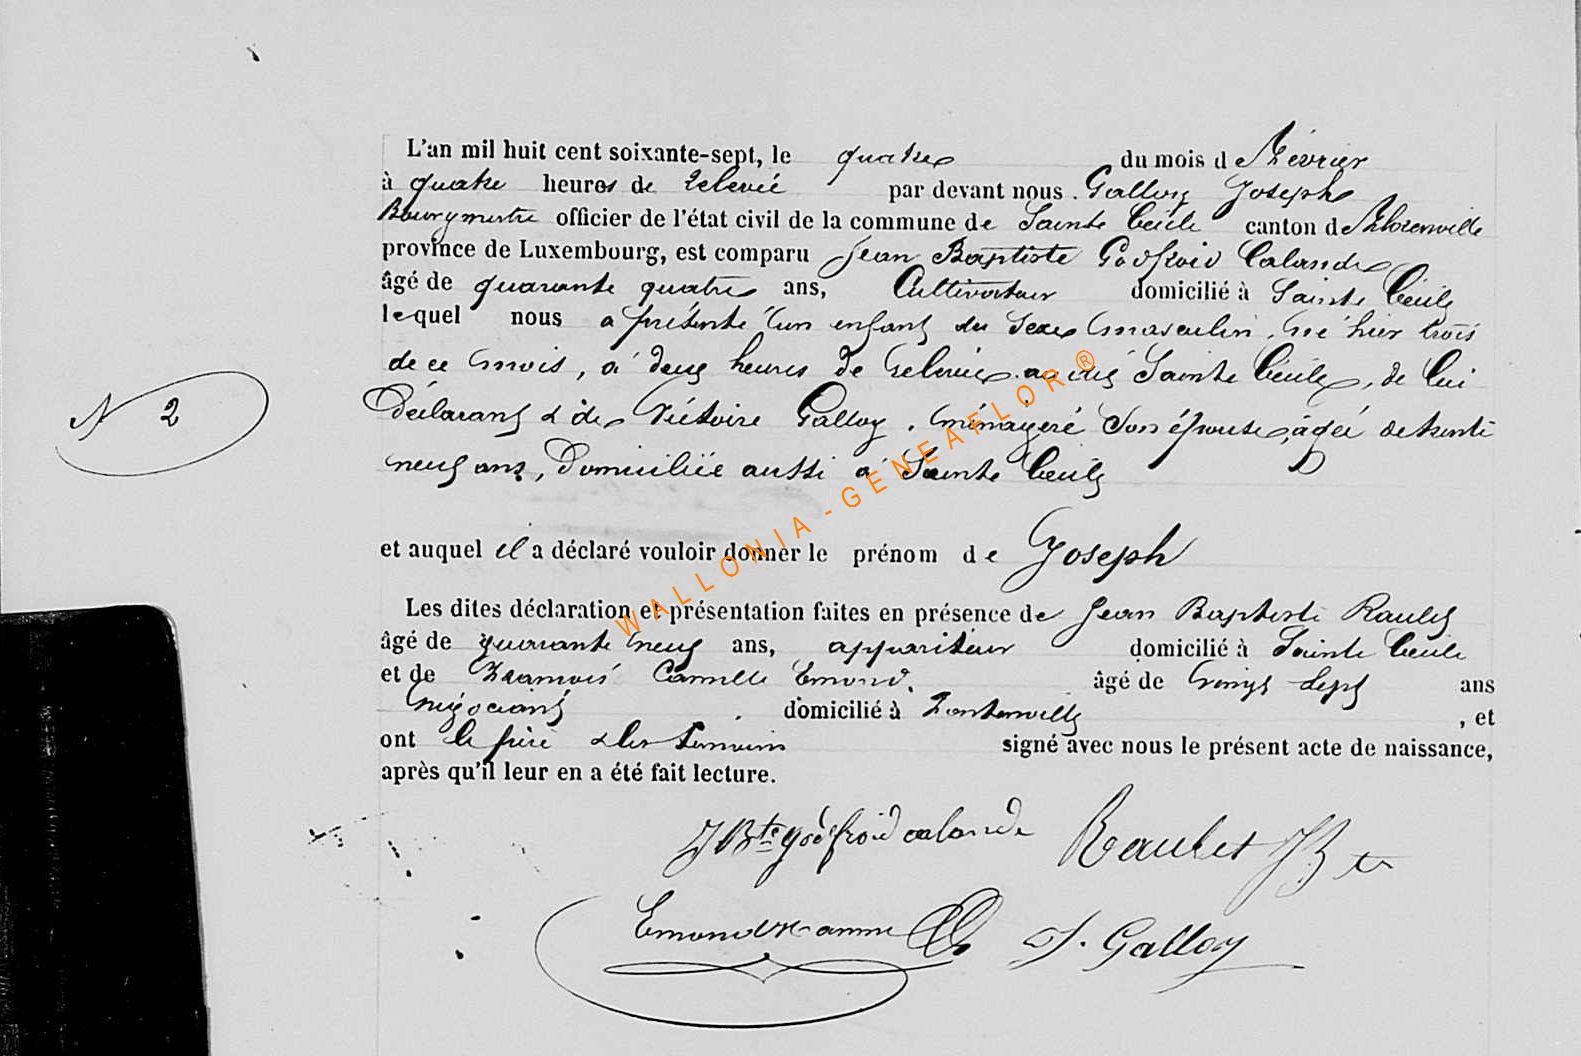 L'an mil huit cent soixante-sept, le quatre du mois de Février
à quatre heures de relevée par devant nous Galloy Joseph
Bourgmestre officier de l'état civil de la commune de Sainte Cécile canton de Florenville
province de Luxembourg, est comparu Jean Baptiste Godfroid Calande
âgé de quarante quatre ans, Cultivateur domicilié à Sainte Cécile
lequel nous a présenté un enfant du sexe masculin, né hier trois
de ce mois, à deux heures de relevée au dit Sainte Cécile, de lui
déclarant & de Victoire Galloy, ménagère son épouse, agée de trente
neuf ans, Domiciliée aussi à Sainte Cécile
N 2
et auquel il a déclaré vouloir donner le prénom de Joseph
Les dites déclaration et présentation faites en présence de Jean Baptiste Raulet
âgé de quarante neuf ans, appariteur domicilié à Sainte Cécile
et de François Camille Emond, âgé de vingt sept ans
négociant domicilié à Fontenville, et
ont le père & les témoins signé avec nous le présent acte de naissance,
après qu'il leur en a été fait lecture.
J Bte godfroid calande Raulet JBte
Emond J. Galloy
WALLONIA-GENEAFLOR®